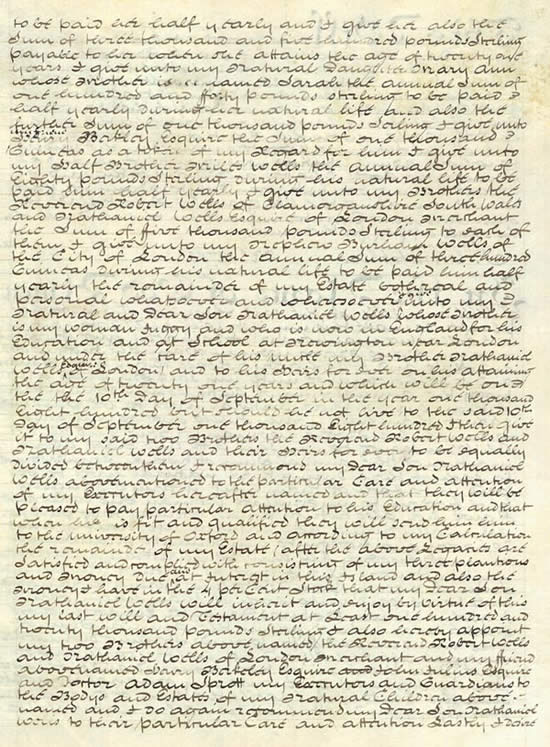 to be paid her half yearly and I give her also the
Sum of three thousand and five hundred pounds Sterling
payable to her when she attains the age of twenty one
years I give unto my Natural Daughter Mary Ann
whose Mother is named Sarah the annual Sum of
one hundred and forty pounds sterling to be paid
half yearly during her natural life and also the
further Sum of one thousand pounds Sterling I give unto
Henry Berkeley Esquire the Sum of one thousand
Guineas as a token of my Regard for him I give unto
my Half Brother Mills Wells the Annual Sum of
Eighty pounds Sterling during his natural life to be
paid him half yearly I give unto my Brothers the
Reverend Robert Wells of Glamorganshire South Wales
and Nathaniel Wells Esquire of London Merchant
the Sum of five thousand pounds Sterling to each of
them I give unto my Nephew Wells of
the City of London the annual Sum of three hundred
Guineas during his natural life to be paid him half
yearly the remainder of my Estate both real and
personal whatsoever and wheresoever I give unto my
Natural and Dear Son Nathaniel Wells whose Mother
is my woman Juggy and who is now in England for his
Education and at School at Newington near London
and under the care of his uncle my Brother Nathaniel
Wells Esquire (London) and to his Heirs for ever on his attaining
the age of twenty one years and which will be on
the the 10th Day of September in the year one thousand
Eight hundred but should he not live to the said 10th
Day of September one thousand Eight hundred I then give
it to my said two Brothers the Reverend Robert Wells and
Nathaniel Wells and their Heirs for ever to be equally
divided between them I recommend my Dear Son Nathaniel
Wells abovementioned to the particular Care and attention
of my Executors hereafter named and that they will be
pleased to pay particular attention to his Education and that
when he is fit and qualified they will send him him
to the university of Oxford and according to my Calculation
the remainder of my Estate (after the above Legacies are
satisfied and complied with) consisting of my three plantions
and money due and at Interest in this Island and also the
money I have in the 4 per Cent Stock that my Dear Son
Nathaniel Wells will inherit and enjoy by virtue of this
my last will and Testament at Least one hundred and
twenty thousand pounds Sterling I also hereby appoint
my two Brothers above named the Reverend Robert Wells
and Nathaniel Wells of London Merchant and my friend
abovenamed Henry Berkeley Esquire and John Julius Esquire
and Doctor Adam Sprott my Executors and Guardians to
the Bodys and Estates of my Natural Children above
named and I do again recommend my Dear Son Nathaniel
Wells to their particular Care and attention Lastly I desire